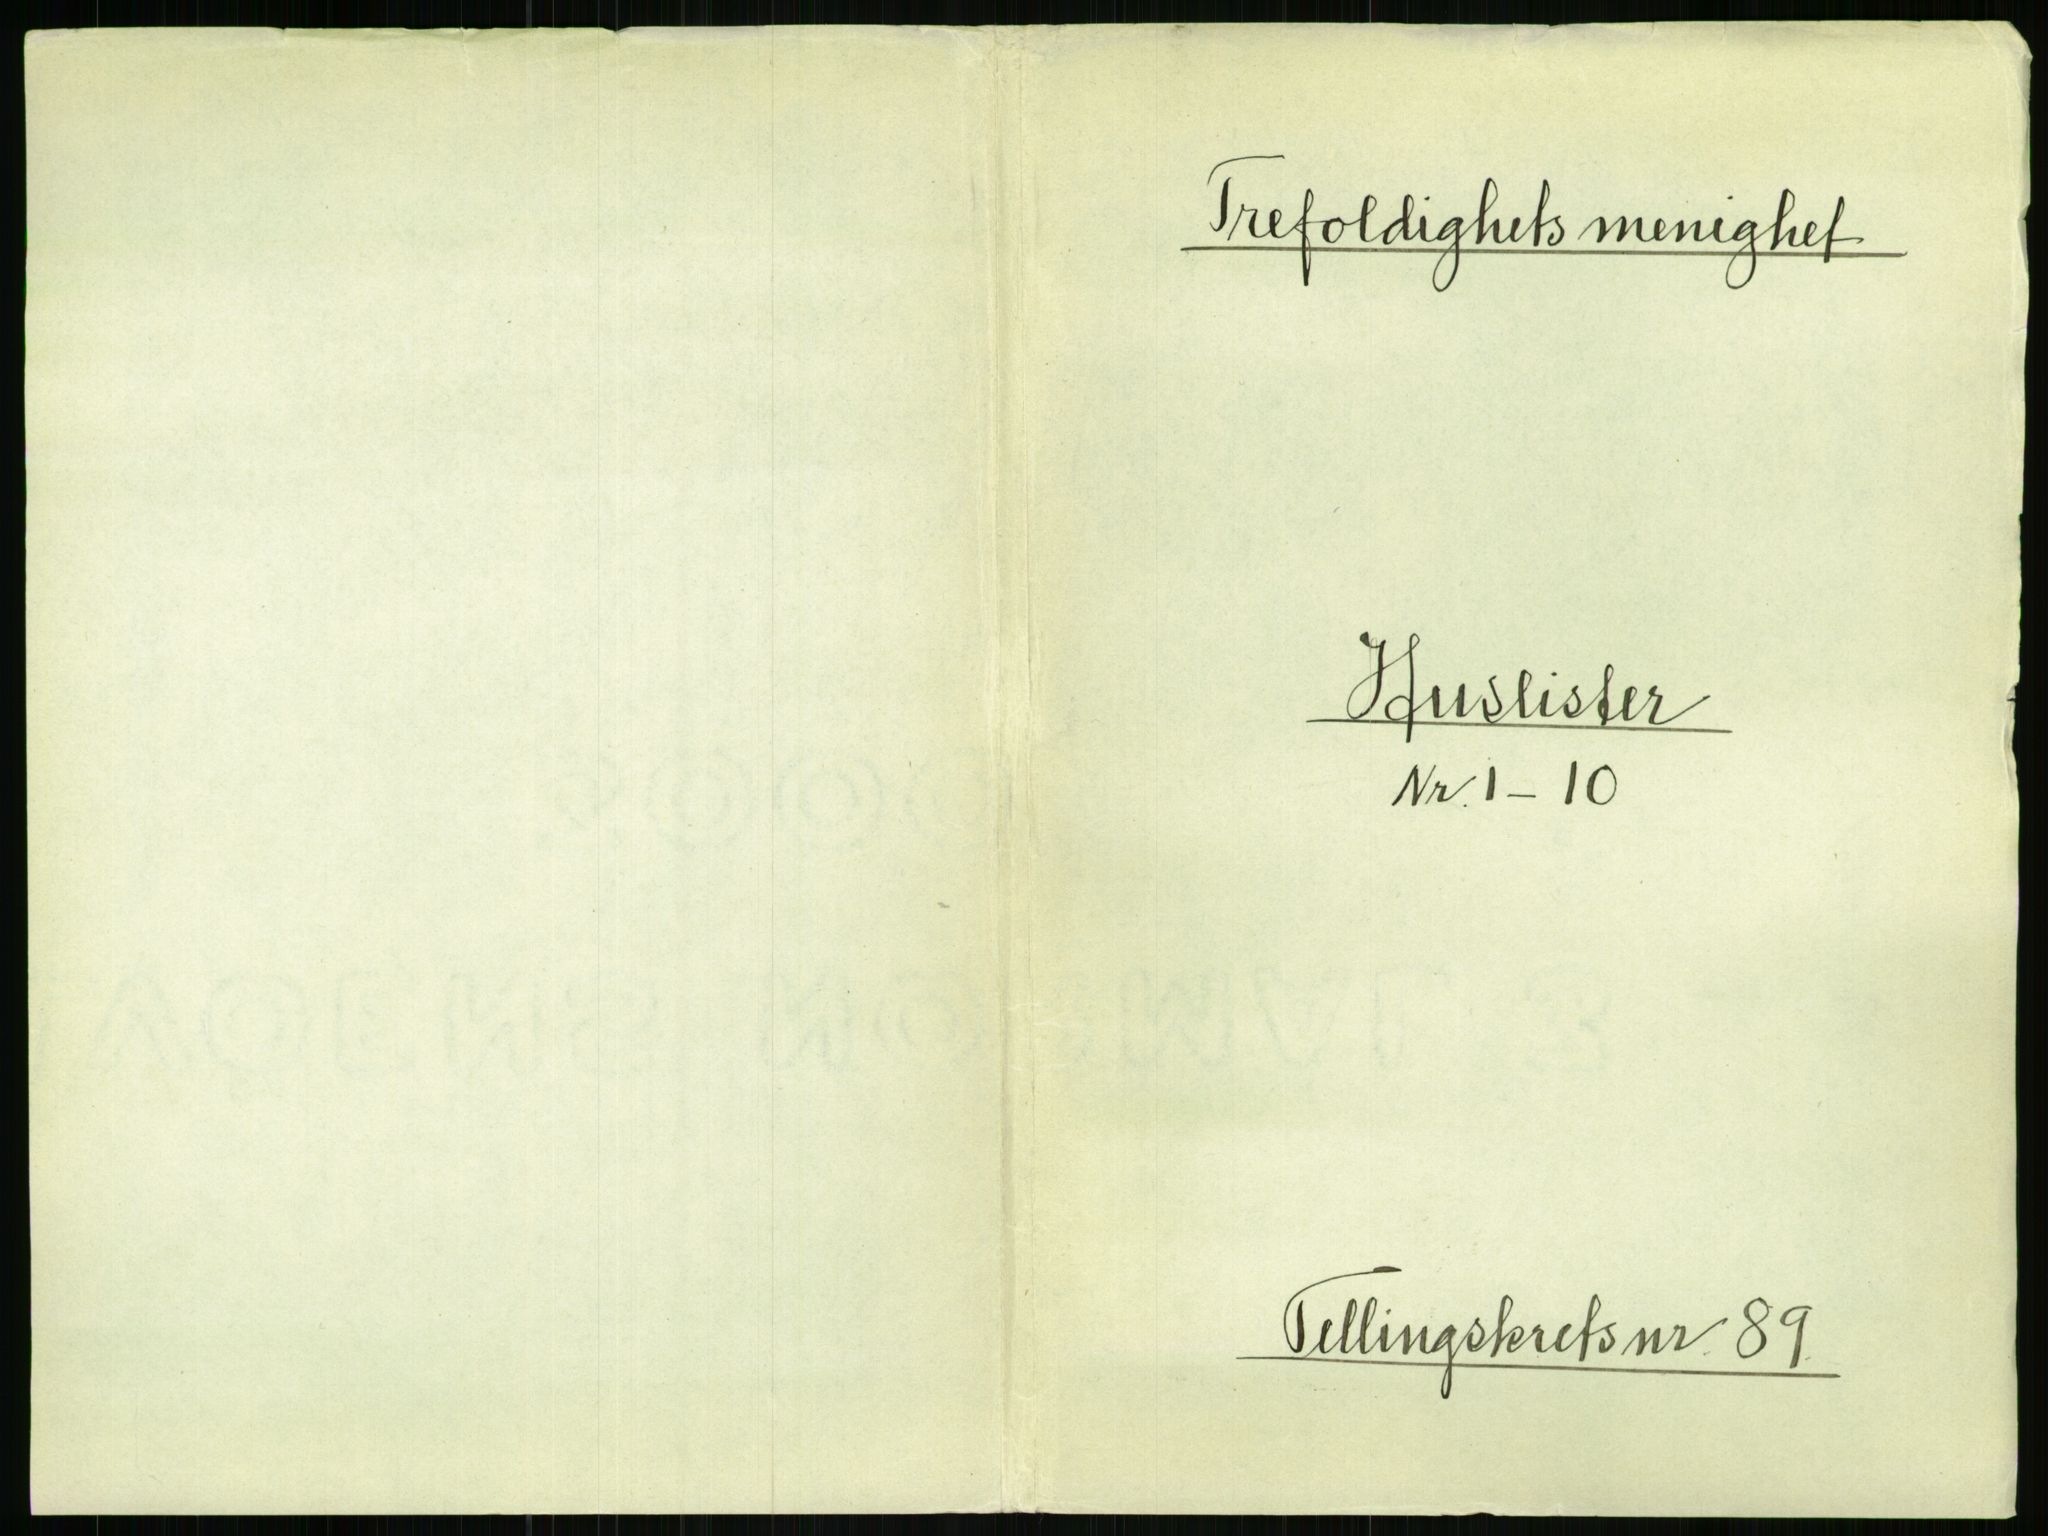 Trefoldighets menighet
Huslister
Nr. 1 - 10
Tellingskrets nr. 89.